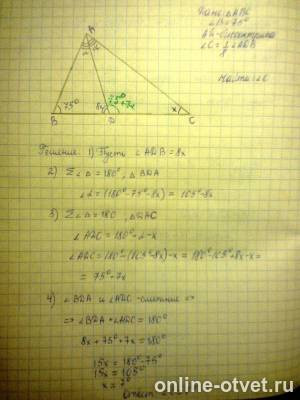 Дано: △ABC
∠B=75°
AD-биссектриса
∠C=1/8∠ADB
Найти: ∠C
A
75°
8x
75°+7x
x
B
D
C
Решение: 1) Пусть ∠ADB = 8x
2) Σ∠△ = 180°, △BDA
∠α = (180°-75°-8x) = 105°-8x
3) Σ∠△ = 180, △DAC
∠ADC = 180°-α-x
∠ADC = 180°-(105°-8x)-x = 180°-105°+8x-x =
= 75°+7x
4) ∠BDA и ∠ADC -смежные ⇒
⇒ ∠BDA+∠ADC = 180°
8x+75°+7x = 180°
15x = 180°-75°
15x = 105°
x = 7°
Ответ
online-otvet.ru